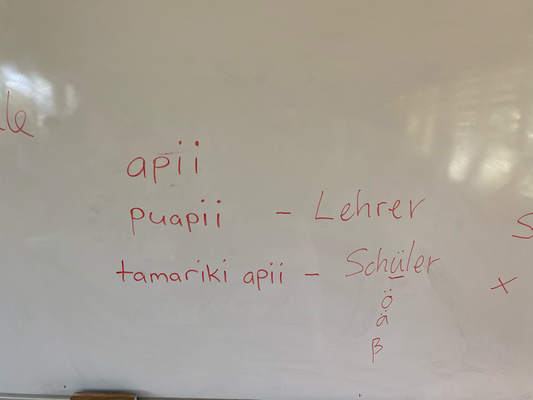 apii
puapii - Lehrer
tamariki apii - Schüler
ö
ä
ß
x